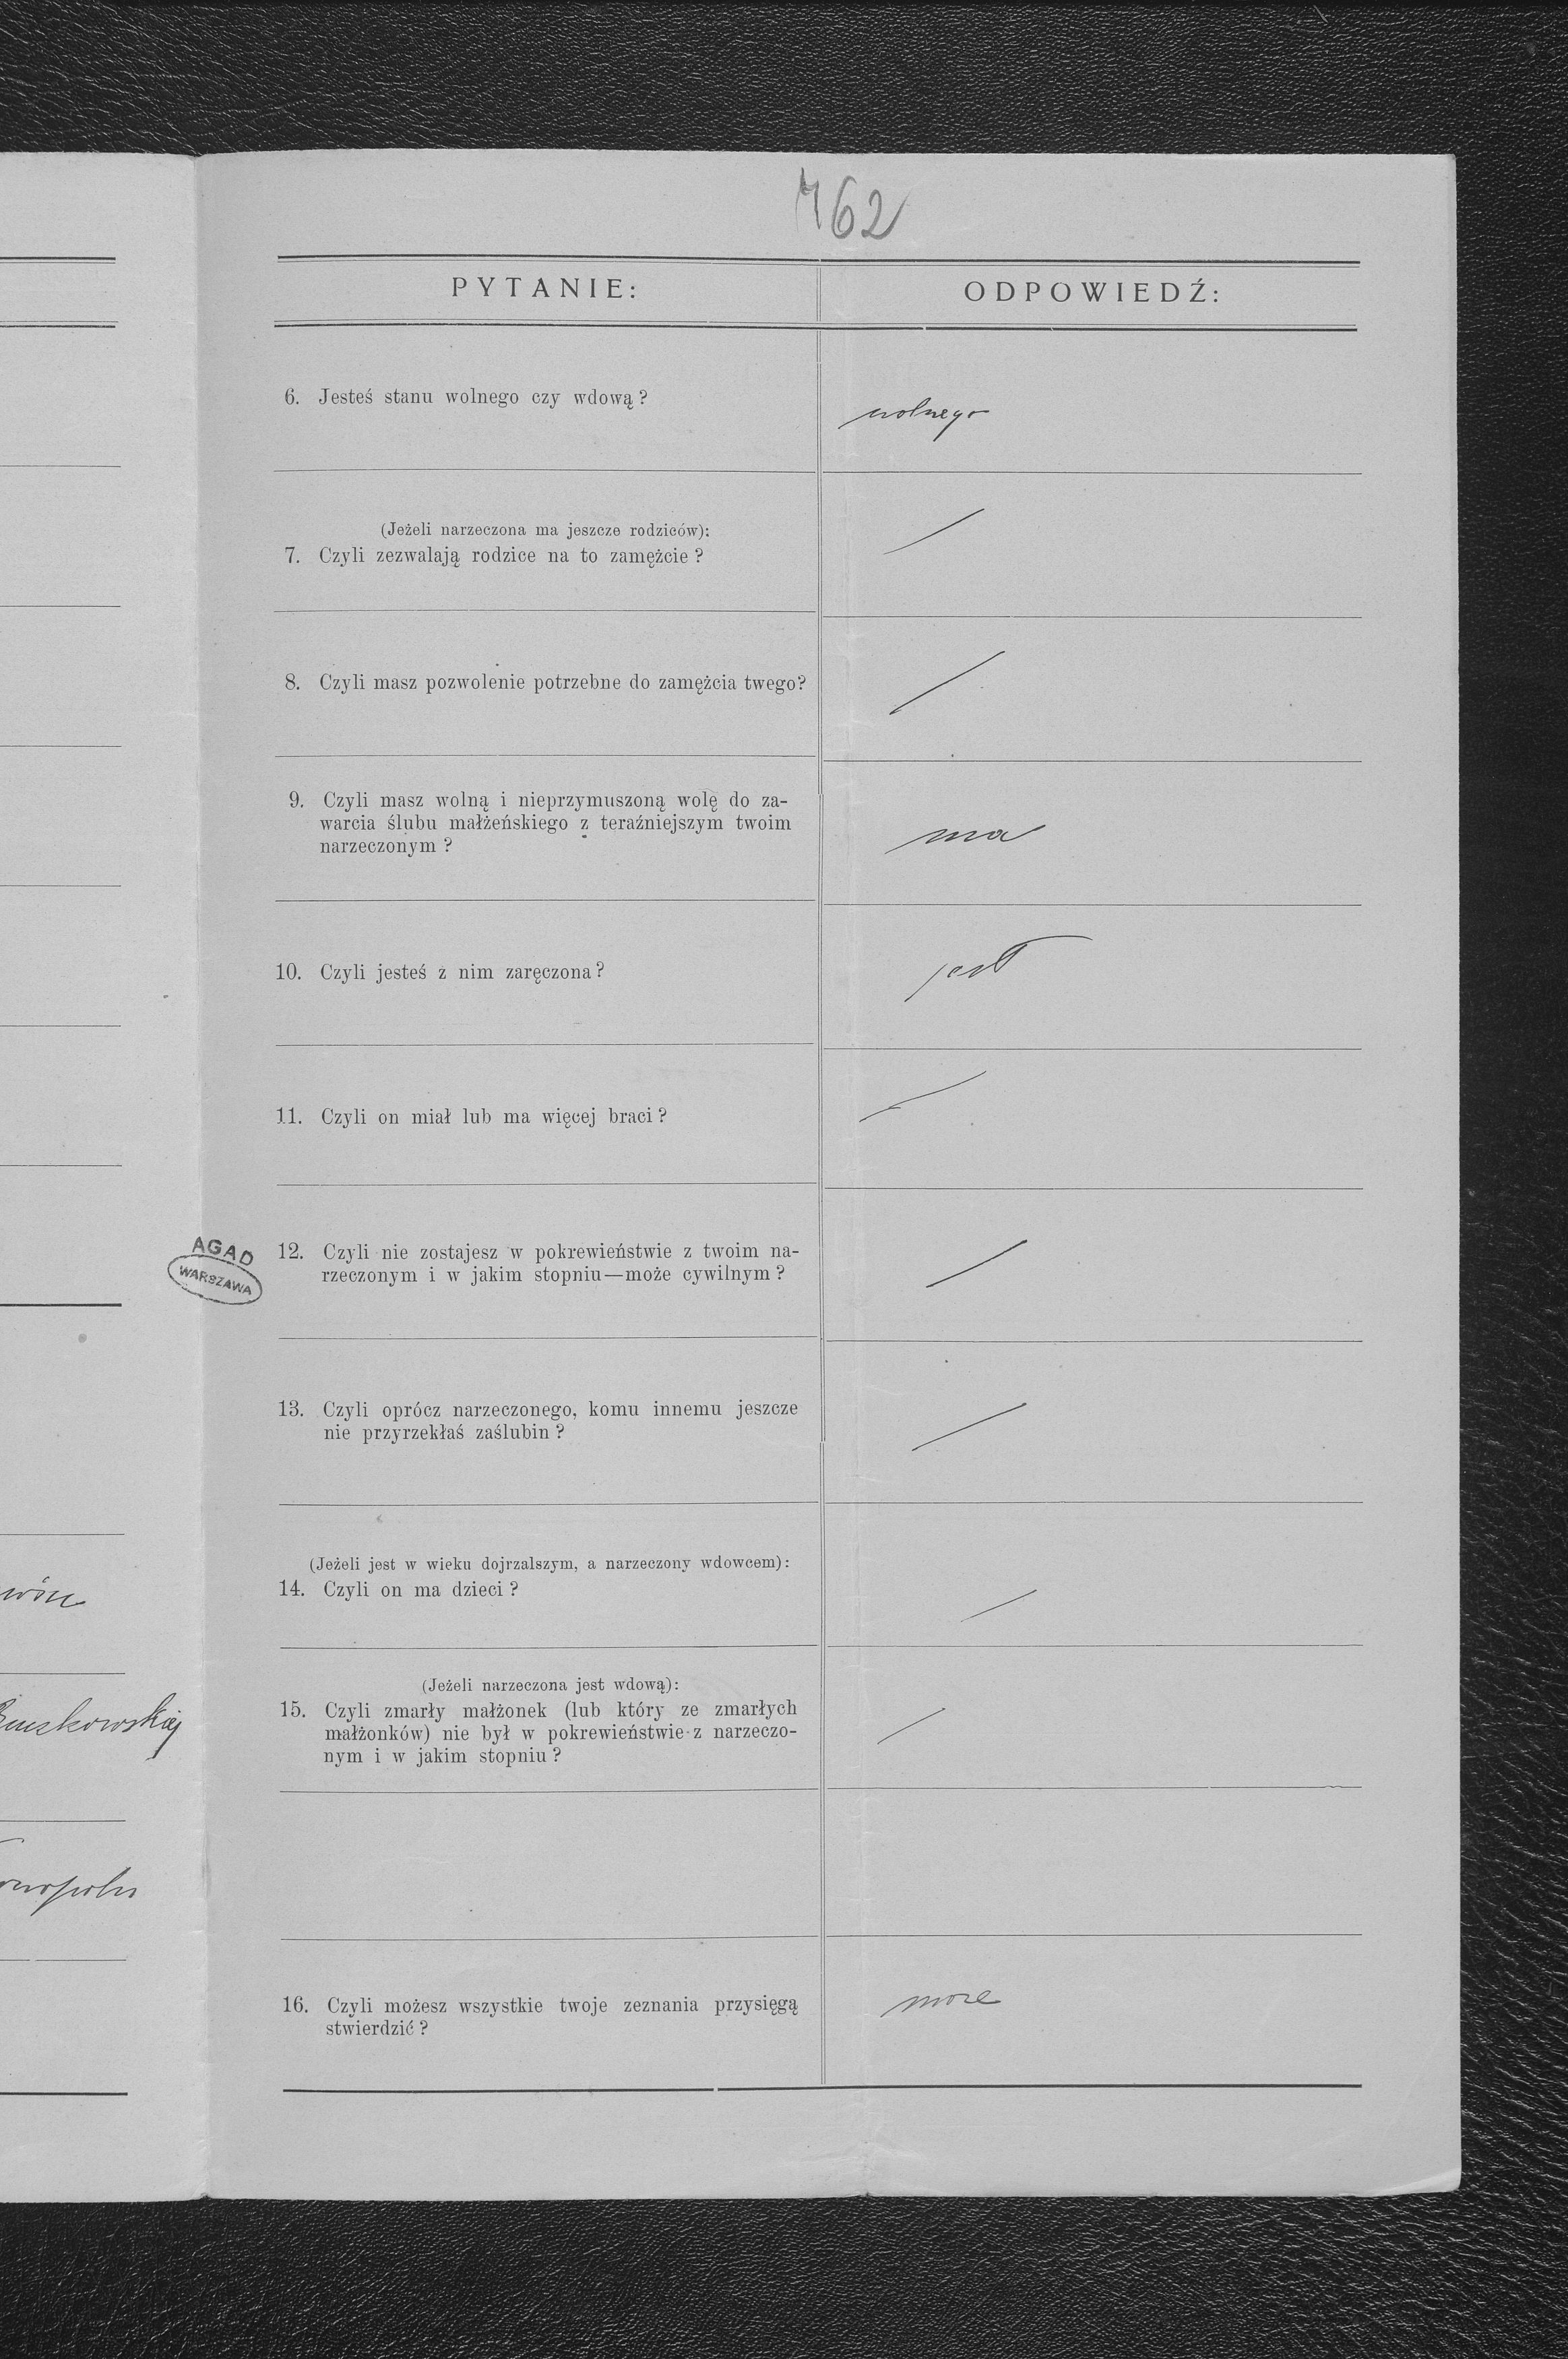 762
PYTANIE:
ODPOWIEDŹ:
6. Jesteś stanu wolnego czy wdową?
wolnego
(Jeżeli narzeczona ma jeszcze rodziców):
7. Czyli zezwalają rodzice na to zamężcie?
8. Czyli masz pozwolenie potrzebne do zamężcia twego?
9. Czyli masz wolną i nieprzymuszoną wolę do za-
warcia ślubu małżeńskiego z teraźniejszym twoim
narzeczonym?
ma
10. Czyli jesteś z nim zaręczona?
jest
11. Czyli on miał lub ma więcej braci?
AGAD
WARSZAWA
12. Czyli nie zostajesz w pokrewieństwie z twoim na-
rzeczonym i w jakim stopniu—może cywilnym?
13. Czyli oprócz narzeczonego, komu innemu jeszcze
nie przyrzekłaś zaślubin?
(Jeżeli jest w wieku dojrzalszym, a narzeczony wdowcem):
14. Czyli on ma dzieci?
(Jeżeli narzeczona jest wdową):
15. Czyli zmarły małżonek (lub który ze zmarłych
małżonków) nie był w pokrewieństwie z narzeczo-
nym i w jakim stopniu?
16. Czyli możesz wszystkie twoje zeznania przysięgą
stwierdzić?
może